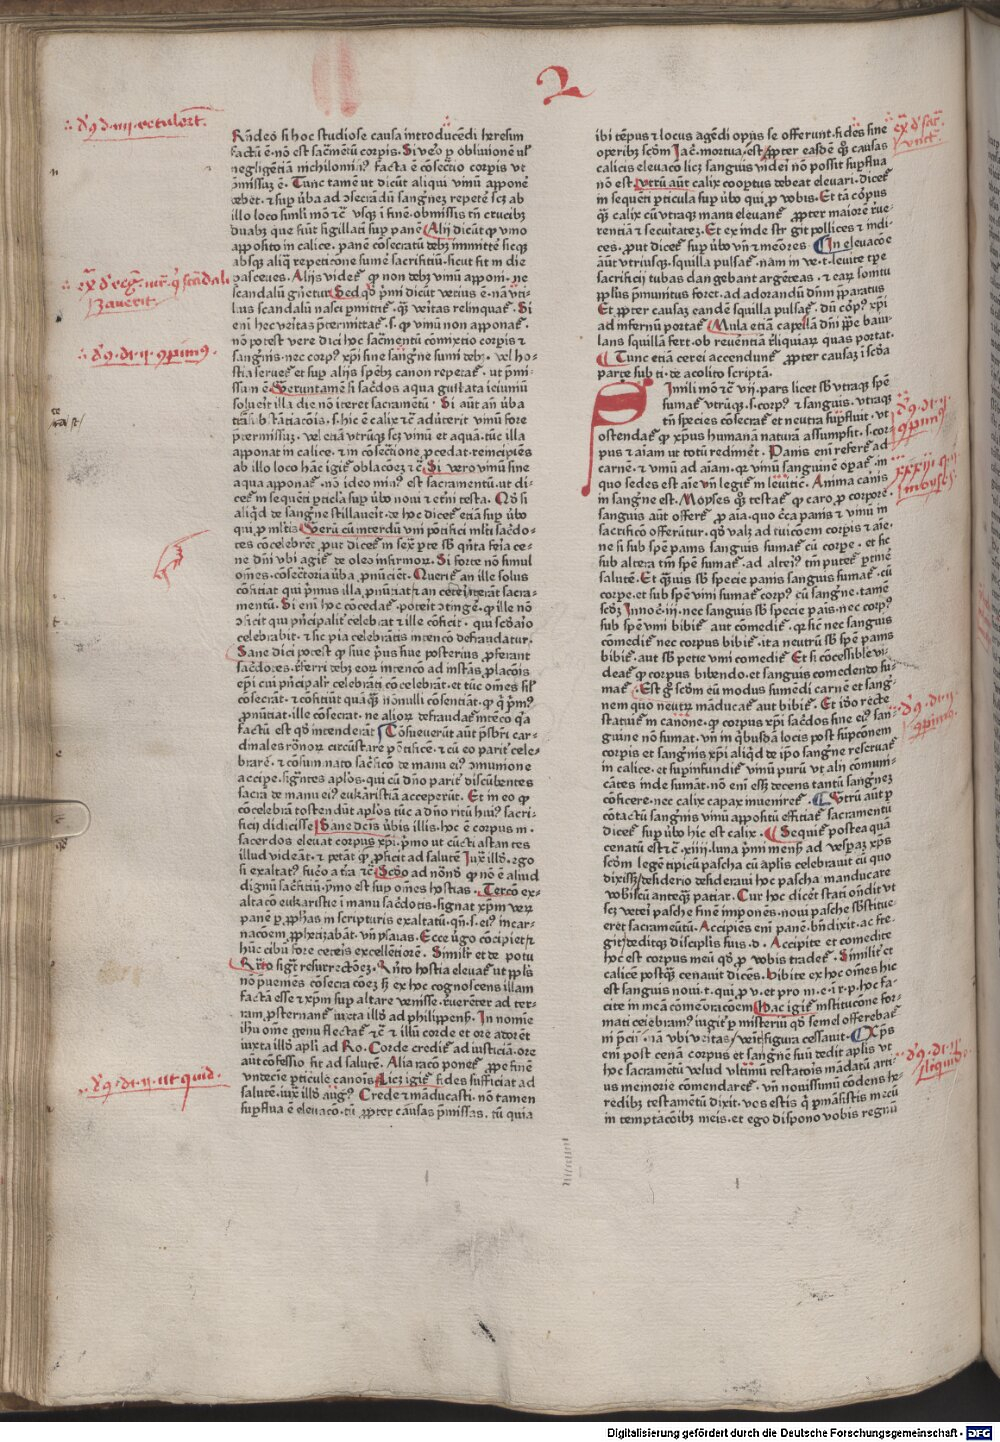 2
∴ d̄ 9 d. iiij. retulerūt.
Rn̄deo si hoc studiose causa introducēdi heresim
factū ē. nō est sacmētū corpis. Si vero ꝓ obliuionē ul'
negligētiā nichilomin⁹ facta ē cōsectio corpis ut
p̄missuꝫ ē. Tunc tamē ut dicūt aliqui vinū apponē
debet. ⁊ sup v̄ba ad ɔsecradū sangneꝫ repetē scꝫ ab
illo loco simli mō ⁊c̄ usqꝫ ī finē. obmissis tn̄ crucibꝫ
duabꝫ que fiūt sigillati sup panē Alij dicūt ꝙ vino
apposito in calice. panē cōsecratū debꝫ immittē sicqꝫ
absqꝫ aliq̄ repeticone sumē sacrificiū. sicut fit in die
pasceues. Alijs videt̄ ꝙ non debꝫ vinū apponi. ne
scandalū gn̄etur Sed q̄ p̄mi dicūt verius ē. nā vti-
lius scandalū nasci p̄mittit̄ qꝫ veritas relinquat̄. Si
eni hec veritas p̄termittat̄. s. ꝙ vinū non apponat̄.
nō potest vere dici hoc sacmentū comixtio corpis ⁊
sangnis. nec corp⁹ xpi sine sangne sumi debꝫ. vel ho-
stia seruet̄ et sup alijs spēbꝫ canon repetat̄. ut p̄mi-
ssum ē. Veruntamē si sacdos aqua gustata ieiuniū
soluerit illa die nō iteret sacramentū. Si aut an̄ v̄ba
trāsubstātiacois. s. hic ē calix ⁊c̄ aduterit vinū fore
p̄termissuꝫ. vel etiā vtrūqꝫ scꝫ vinū et aqua. tūc illa
apponat in calice. ⁊ in cōsectione ꝓcedat. reincipiēs
ab illo loco hāc igit̄ oblacōeꝫ ⁊c̄ Si vero vinū sine
aqua apponat̄. nō ideo min⁹ est sacramentū. ut di-
cet̄ in sequēti pticla sup v̄bo noui ⁊ etni testa. Qd' si
aliqd de sangne stillauerit. de hoc dicet̄ etiā sup v̄bo
qui ꝓ mltis Verū cū interdū vni pōtifici mlti sacdo-
tes cōcelebrēt
ne dn̄i vbi agit̄ de oleo infirmoꝝ. Si forte nō simul
om̄es. cōsecratoria v̄ba ꝓnūciēt. Querit̄ an ille solus
cōficiat qui p̄mus illa ꝓnūciat
mentū. Si eni hoc cōcedat̄. poterit ɔtingē. ꝙ ille nō
ɔficit qui p̄ncipalit̄ celebrat et ille cōficit. qui scdario
celebrabit. ⁊ sic pia celebratis intencō defraudatur.
Sane dici potest ꝙ siue p̄us siue posterius ꝓferant
sacdotes. referri debꝫ eoꝝ intencō ad instās ꝓlacōis
ep̄i cui p̄ncipalr̄ celebrāti cōcelebrāt. et tūc om̄es sil'
cōsecrāt. ⁊ cōficiūt quāqꝫ nōnulli cōsentiāt. ꝙ q̄ p̄m⁹
ꝓnūtiat. ille cōsecrat. ne alioꝝ defraudat̄ intēcō qia
factū est qd' intenderāt Cōsueuerūt aūt p̄sbri car-
dinales rōnoꝝ circūstare pōtificē. ⁊ cū eo parit̄ cele-
brarē. ⁊ cōsummato sacfico de manu ei⁹ ɔmunione
accipe. signtes aplos. qui cū dn̄o parit̄ discūbentes
sacra de manu ei⁹ eukaristiā acceperūt. Et in eo ꝙ
cōcelebrāt ostendūt aplos tūc a dn̄o ritū hui⁹ sacri-
ficij didicisse Sane dc̄is v̄bis illis. hoc ē corpus m.
sacerdos eleuat corpus xpi. p̄mo ut cūcti astantes
illud videāt. ⁊ petāt ꝙ ꝓficit ad salutē Iux̄ illd. ego
si exaltat⁹ fuero a tra ⁊c̄ Scdo ad nōnd ꝙ nō ē aliud
dignū sacficiū. p̄mo est sup om̄es hostias. Tercō ex-
altacō eukaristie ī manu sacdotis. signat xpm veꝝ
panē p ꝓphas in scripturis exaltatū. qn̄. s. ei⁹ incar-
nacōem ꝓphetizabāt. vn̄ ysaias. Ecce virgo cōcipiet ⁊
hūc cibū fore ceteris excellētiorē. Similr̄ et de potu
Rnto sigt̄ resurrectōeꝫ. Rnto hostia eleuat̄ ut ppls
nō p̄uemēs cōsecracōeꝫ sꝫ ex hoc cognoscens illam
factā esse ⁊ xpm sup altare venisse. reuerēter ad ter-
ram ꝓsternant̄ iuxta illd ad philippenses. In nomīe
ihu om̄e genu flectat̄ ⁊c̄ ⁊ illū corde et ore adorēt
iuxta illd apli ad Ro. Corde credit̄ ad iusticiā. ore
aūt confessio fit ad salutē. Alia racō ponet̄ ꝓpe finē
vndecie pticule canois Licꝫ igit̄ fides sufficiat ad
salutē. iux̄ illd aug⁹. Crede ⁊ māducasti. nō tamen
supflua ē eleuacō. tū ꝓpter causas p̄missas. tū quia
∴ d̄ 9. di. ij. 9perimus.
∴ d̄ 9. di. ij. ut quid.
ibi tēpus ⁊ locus agēdi opus se offerunt. fides sine
operibꝫ scdm Iac. mortua est Propter easdē qꝫ causas
calicis eleuacō licꝫ sanguis videri nō possit supflua
nō est. Vtrū aūt calix coopertus debeat eleuari. dicet̄
in sequēti pticula sup v̄bo qui ꝓ vobis. Et tā corpus
qꝫ calix cū vtraqꝫ manu eleuant̄ ꝓpter maiorē reue-
rentiā ⁊ securitateꝫ. Et ex inde stringit pollices ⁊ indi-
ces. ꝓut dicet̄ sup v̄bo vn̄ ⁊ memores In eleuacōe
aūt vtriusqꝫ. squilla pulsat̄. nam in ve. t. leuite tpe
sacrificij tubas clangebant argēteas. ⁊ earꝫ sonitu
ppls p̄munitus foret. ad adorandū dn̄m pparatus
Et ꝓpter causaꝫ eandē squilla pulsat̄. dū corp⁹ xpi
ad infirmū portat̄ Mula etiā capellā dn̄i ppe baiu-
lans squillā fert. ob reuerentiā reliquiaꝝ quas portat.
Tunc etiā cerei accendunt̄ ꝓpter causaꝫ ī scda
parte sub ti. de acolito scriptā.
Simili mō ⁊c̄ vij. pars licet sb' vtraqꝫ spē
sumat̄ vtrūqꝫ. s. corp⁹ ⁊ sanguis. vtraqꝫ
tn̄ species cōsecrat̄ et neutra supfluit. ut
ostendat̄ ꝙ xpus humanā naturā assumpsit. s. cor-
pus ⁊ aiam ut totū redimēt. Panis eni refert̄ ad
carnē. ⁊ vinū ad aiam. qꝛ vinū sanguinē opat̄. in
quo sedes est aie vn̄ legit̄ in leuitic̄. Anima carnis
in sangne est. Moyses qꝫ testat̄ ꝙ caro ꝓ corpore.
sanguis aūt offert̄ ꝓ aia. quo circa panis ⁊ vinū in
sacrificō offerūtur. qd' valꝫ ad tuicōem corpis ⁊ aie.
ne si sub spē panis sanguis sumat̄ cū corpe. et sic
salutē. Et qꝫuis sb' specie panis sanguis sumat̄. cū
corpe. et sub spē vini sumat̄ corp⁹ cū sangne. tamē
scdꝫ Innoc̄. iij. nec sanguis sb' specie panis. nec corp⁹
sub spē vini bibit̄ aut comedit̄. qꝛ sic nec sanguis
comedit̄ nec corpus bibit̄. ita neutrū sb' spē panis
bibit̄. aut sb' specie vini comedit̄ Et si cōcessibile vi-
deat̄ ꝙ corpus bibendo. et sanguis comedendo su-
mat̄. Est g° scdm eū modus sumēdi carnē et sang-
nem quo neutrꝫ māducat̄ aut bibit̄. Et ideo recte
statuit̄ in canone. ꝙ corpus xpi sacdos sine ei⁹ san-
guine nō sumat. vn̄ in qbusdā locis post supcōnem
corpis et sangnis xpi aliqd de ipo sangne reseruat̄
in calice. et supinfundit̄ vinū purū ut alij cōmuni-
cātes inde sumāt. nō eni esset decens tantū sangneꝫ
cōficere. nec calix capax inueniret̄. Vtrū aūt p
cōtactū sangnis vinū appositū efficiat̄ sacramentū
dicet̄ sup v̄bo hic est calix. Sequit̄ posteaquā
cenatū est ⁊c̄. xiiij. luna p̄mi mensꝫ ad vesperaꝫ xps
scdm legē tipicū pascha cū aplis celebrauit cū quo
dixissꝫ desiderio desideraui hoc pascha manducare
vobiscū anteqꝫ patiar. Cur hoc dicēt stati ondit ut
scꝫ veteri pasche finē imponēs. noui pasche sbstitue-
eret sacramētū. Accipiēs eni panē. bn̄dixit. ac fre-
git. deditqꝫ disciplis suis. d. Accipite et comedite
hoc est corpus meū qd' ꝓ vobis tradet̄. Similit̄ et
calicē postqꝫ cenauit dicēs. bibite ex hoc om̄es hic
est sanguis noui. t. qui ꝓ v. et pro m. e. ī r. p. hoc fa-
cite in meā cōmemoracōem Hac igit̄ institucōne for-
mati celebram⁹ iugit̄ p misteriū qd' semel offerebat̄
in p̄cium. nā ubi vēitas venit figura cessauit. Xp̄s
eni post cenā corpus et sangnē suū dedit aplis ut
hoc sacramētū velud vltimū testatoris mādatū arti-
us memorie cōmendaret. vn̄ nouissimū cōdens he-
redibꝫ testamētū dixit. vos estis q̄ p̄māsistis mecū
in temptacōibꝫ meis. et ego dispono vobis regnū
Digitalisierung gefördert durch die Deutsche Forschungsgemeinschaft - DFG